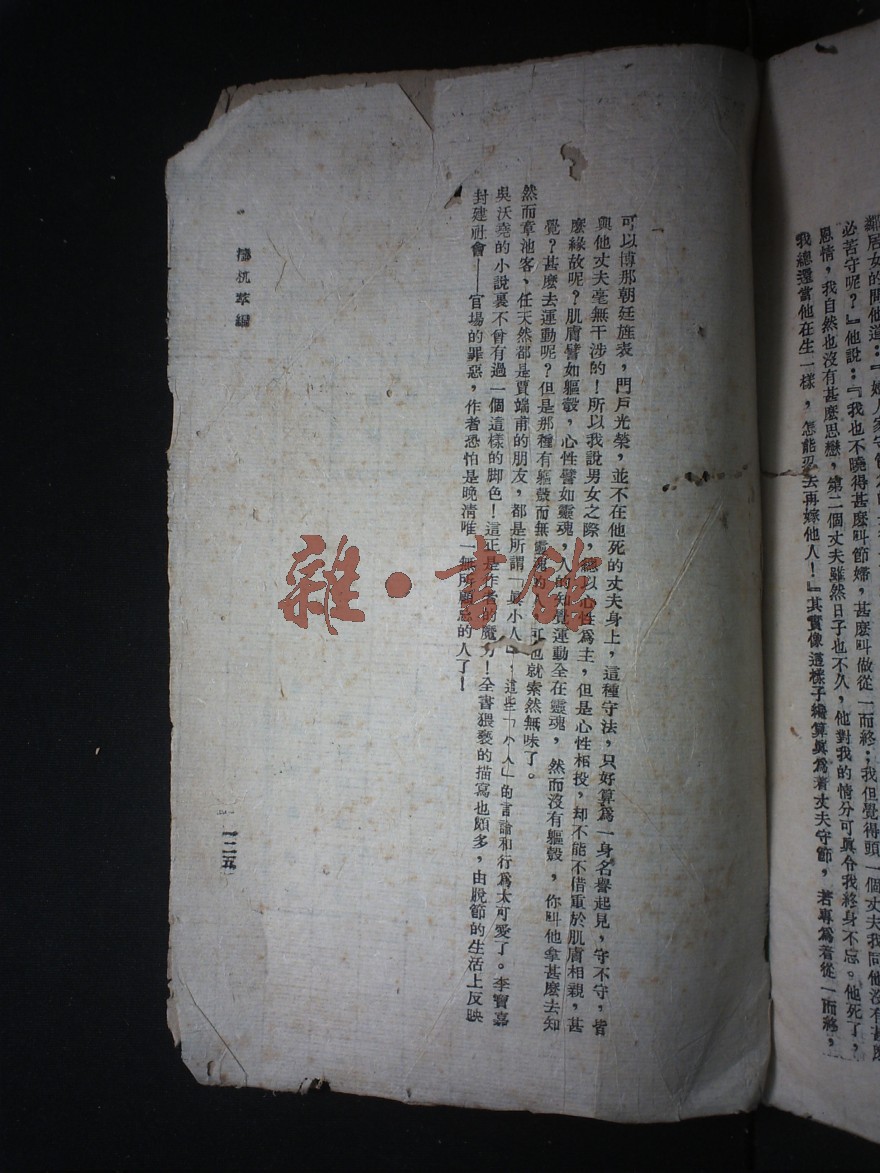 必苦守呢？』他說：『我也不曉得甚麼叫節婦，甚麼叫做從一而終；我但覺得頭一個丈夫我同他沒有甚麼
恩情，我自然也沒有甚麼思戀，第二個丈夫雖然日子也不久，他對我的情分可眞令我終身不忘。他死了，
我總還當他在生一樣，怎能忍去再嫁他人！』其實像這樣子纔算眞爲着丈夫守節，若專爲着從一而終，
可以博那朝廷旌表，門戶光榮，並不在他死的丈夫身上，這種守法，只好算爲一身名譽起見，守不守，皆
與他丈夫毫無干涉的！所以我說男女之際，總以心性爲主，但是心性相投，却不能不借重於肌膚相親，甚
麼緣故呢？肌膚譬如軀殼，心性譬如靈魂，人的知覺運動全在靈魂，然而沒有軀殼，你叫他拿甚麼去知
覺？甚麼去運動呢？但是那種有軀殼而無靈魂的，可也就索然無味了。
然而章池客、任天然都是賈端甫的朋友，都是所謂「眞小人」；這些「小人」的言論和行爲太可愛了。李寶嘉
吳沃堯的小說裏不曾有過一個這樣的脚色！這正是作者的魔力！全書猥褻的描寫也頗多，由脫節的生活上反映
封建社會——官場的罪惡，作者恐怕是晚清唯一無所顧忌的人了！
檮杌萃編
一二五
雜·書館